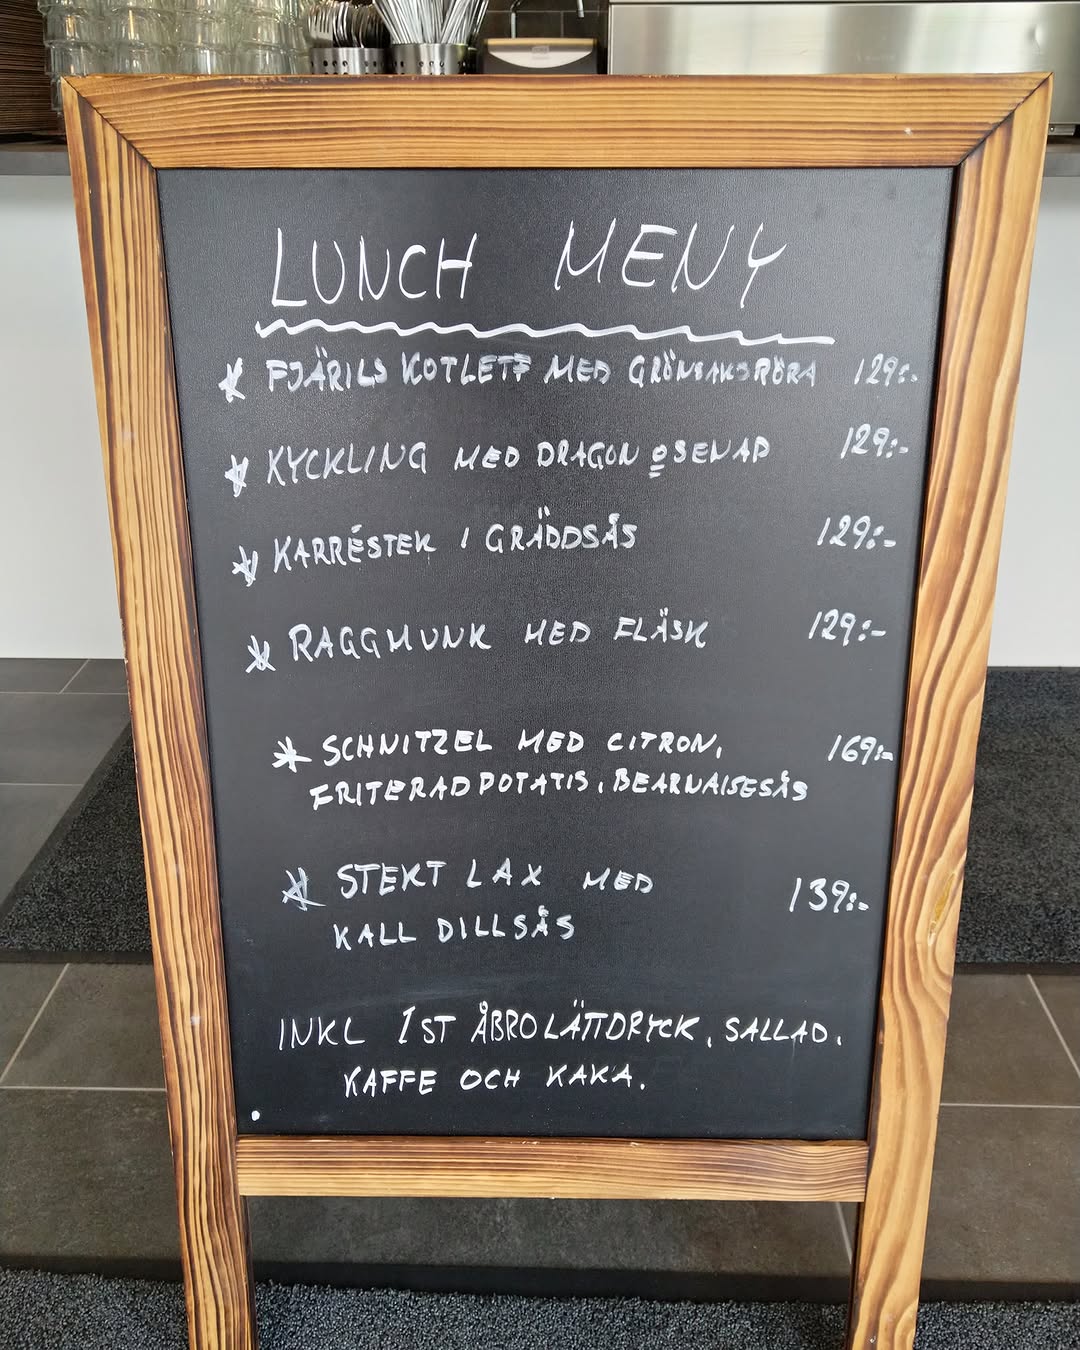 LUNCH MENY
* FJÄRILS KOTLETT MED GRÖNSAKSRÖRA 129:-
* KYCKLING MED DRAGON o SENAP 129:-
* KARRÉSTEK I GRÄDDSÅS 129:-
* RAGGMUNK MED FLÄSK 129:-
* SCHNITZEL MED CITRON, 169:-
FRITERAD POTATIS, BEARNAISESÅS
* STEKT LAX MED 139:-
KALL DILLSÅS
INKL 1ST ÅBRO LÄTTDRYCK, SALLAD,
KAFFE OCH KAKA.